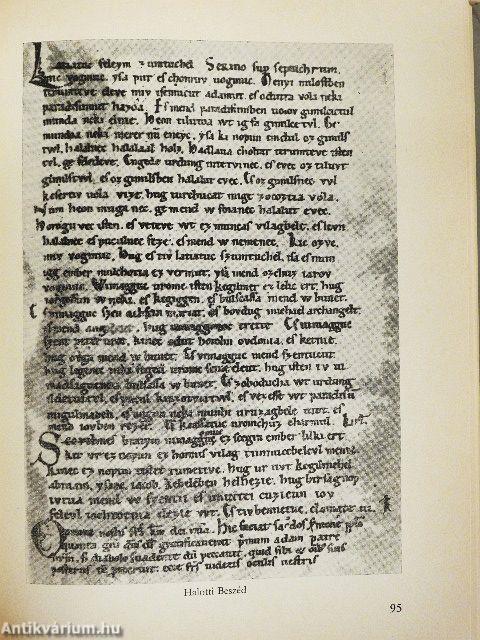 Latiatuc feleym zumtuchel Sermo sup sepulchrum.
mic vogmuc. ysa pur es chomuv uogmuc. Menyi milostben
terumteve eleve miv isemucut adamut. es odutta vola neki
paradisumut hazoa. Es mend paradisumben uolov gimilcictul
munda neki elnie. Heon tilutoa wt ig fa gimilcetvl. Ge
mundoa neki meret nu eneyc. ysa ki nopun emdul oz gimils
twl. halalnec halalaal holz. Hadlaua choltat terumteve isten
tvl. ge feledeve. Engede urdung intetvinec. es evec oz tiluvt
gimilstvl. es oz gimilsben halalut evec. Es oz gimilsnec vvl
keseruv uola vize. hug turchucat mige zocoztia vola.
Num heon muga nec. ge mend w foianec halalut evec.
Horoguvec isten. es veteve wt ez muncas vilagbele. es levn
halalnec es puculnec feze. es mend w nemenec. Kic ozvc.
miv vogmuc. Hug es tiv latiatuv szumtuchel. isa es num
igg ember mulchotia ez vermut. ysa mend ozchuz iarov
vogmuc. Wimagguc uromv isten kegilmet ez lelic ert. hug
iorgossun w neki. es kegiggen. es bulsassa mend w bunet.
Es vimagguc szen achscin mariat. es bovdug michael archangelt.
es mend angelcut. hug uimaggonoc erette. Es uimagguc
szent peter urot. kinec odut hotolm ovdonia. es ketnie.
hug ovga mend w bunet. Es vimagguc mend szentucut.
hug legenec neki seged uromc scine eleut. hug isten iv ui
madsagucmia bulsassa w bunet. Es zoboducha wt urdung
ildetuitvl. es pucul kinzotviatwl. es vezesse wt paradisu
nugulmabeli. es oggun neki munhi uruzagbele utot. es
mend iovben rezet. Es keassatuc uromchuz charmul. Kirl.
Scerelmes bratym uimagguc ez scegin ember lilki ert.
kit vr ez nopun ez homus vilag timnucebelevl mente.
kinec ez nopun testet tumetivc. hug ur uvt kegilmehel
abraam. ysaac. iacob. kebeleben helhezie. hug birsagnop
ivtva mend w szentii es unuttei cuzicun iov
felevl iochtotnia ilezie wt. Es tiv bennetuc. clamate iii. k.
Halotti Beszéd
95
Antikvárium.hu